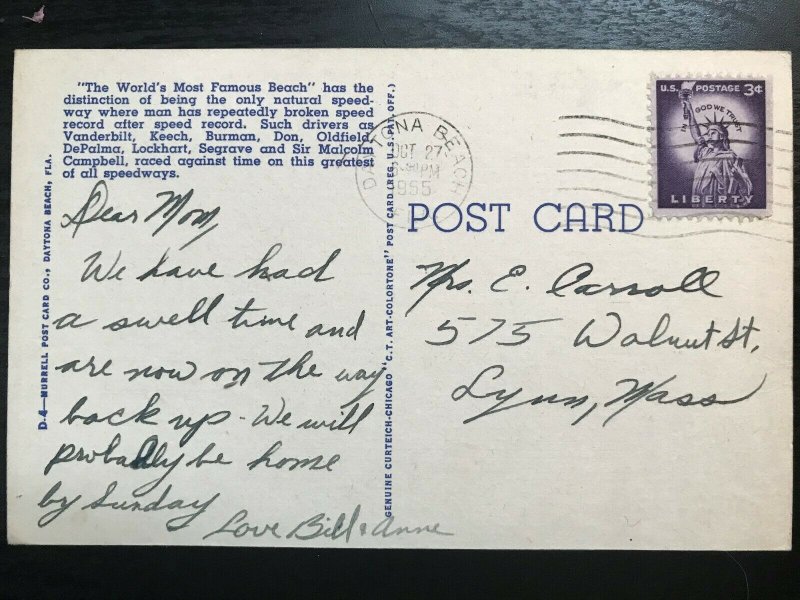 "The World's Most Famous Beach" has the
distinction of being the only natural speed-
way where man has repeatedly broken speed
record after speed record. Such drivers as
Vanderbilt, Keech, Burman, Don, Oldfield,
DePalma, Lockhart, Segrave and Sir Malcolm
Campbell, raced against time on this greatest
of all speedways.
D-4—MURRELL POST CARD CO., DAYTONA BEACH, FLA.
Dear Mom,
We have had
a swell time and
are now on the way
back up - We will
probably be home
by Sunday
Love Bill & Anne
GENUINE CURTEICH-CHICAGO "C.T. ART-COLORTONE" POST CARD (REG. U.S. PAT. OFF.)
DAYTONA BEACH
OCT 27
PM
1955
U.S. POSTAGE 3¢
IN GOD WE TRUST
LIBERTY
POST CARD
Mrs. E. Carroll
575 Walnut St,
Lynn, Mass